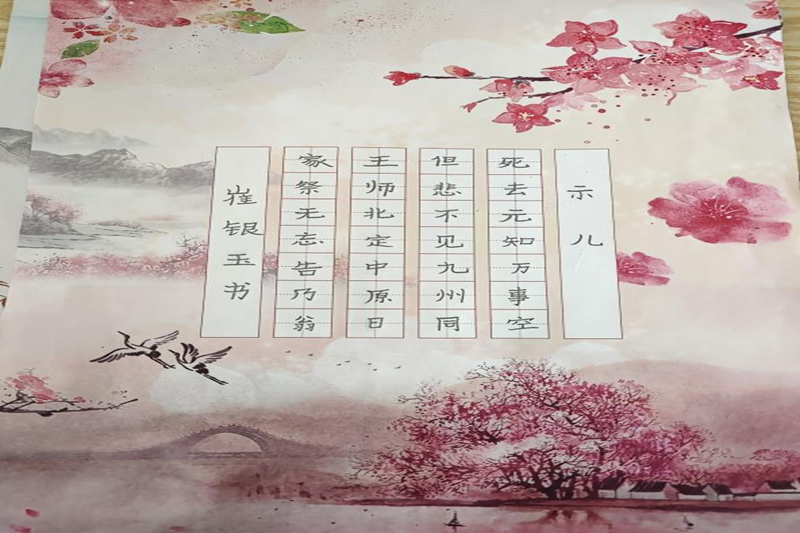 示儿
死去元知万事空
但悲不见九州同
王师北定中原日
家祭无忘告乃翁
崔银玉书